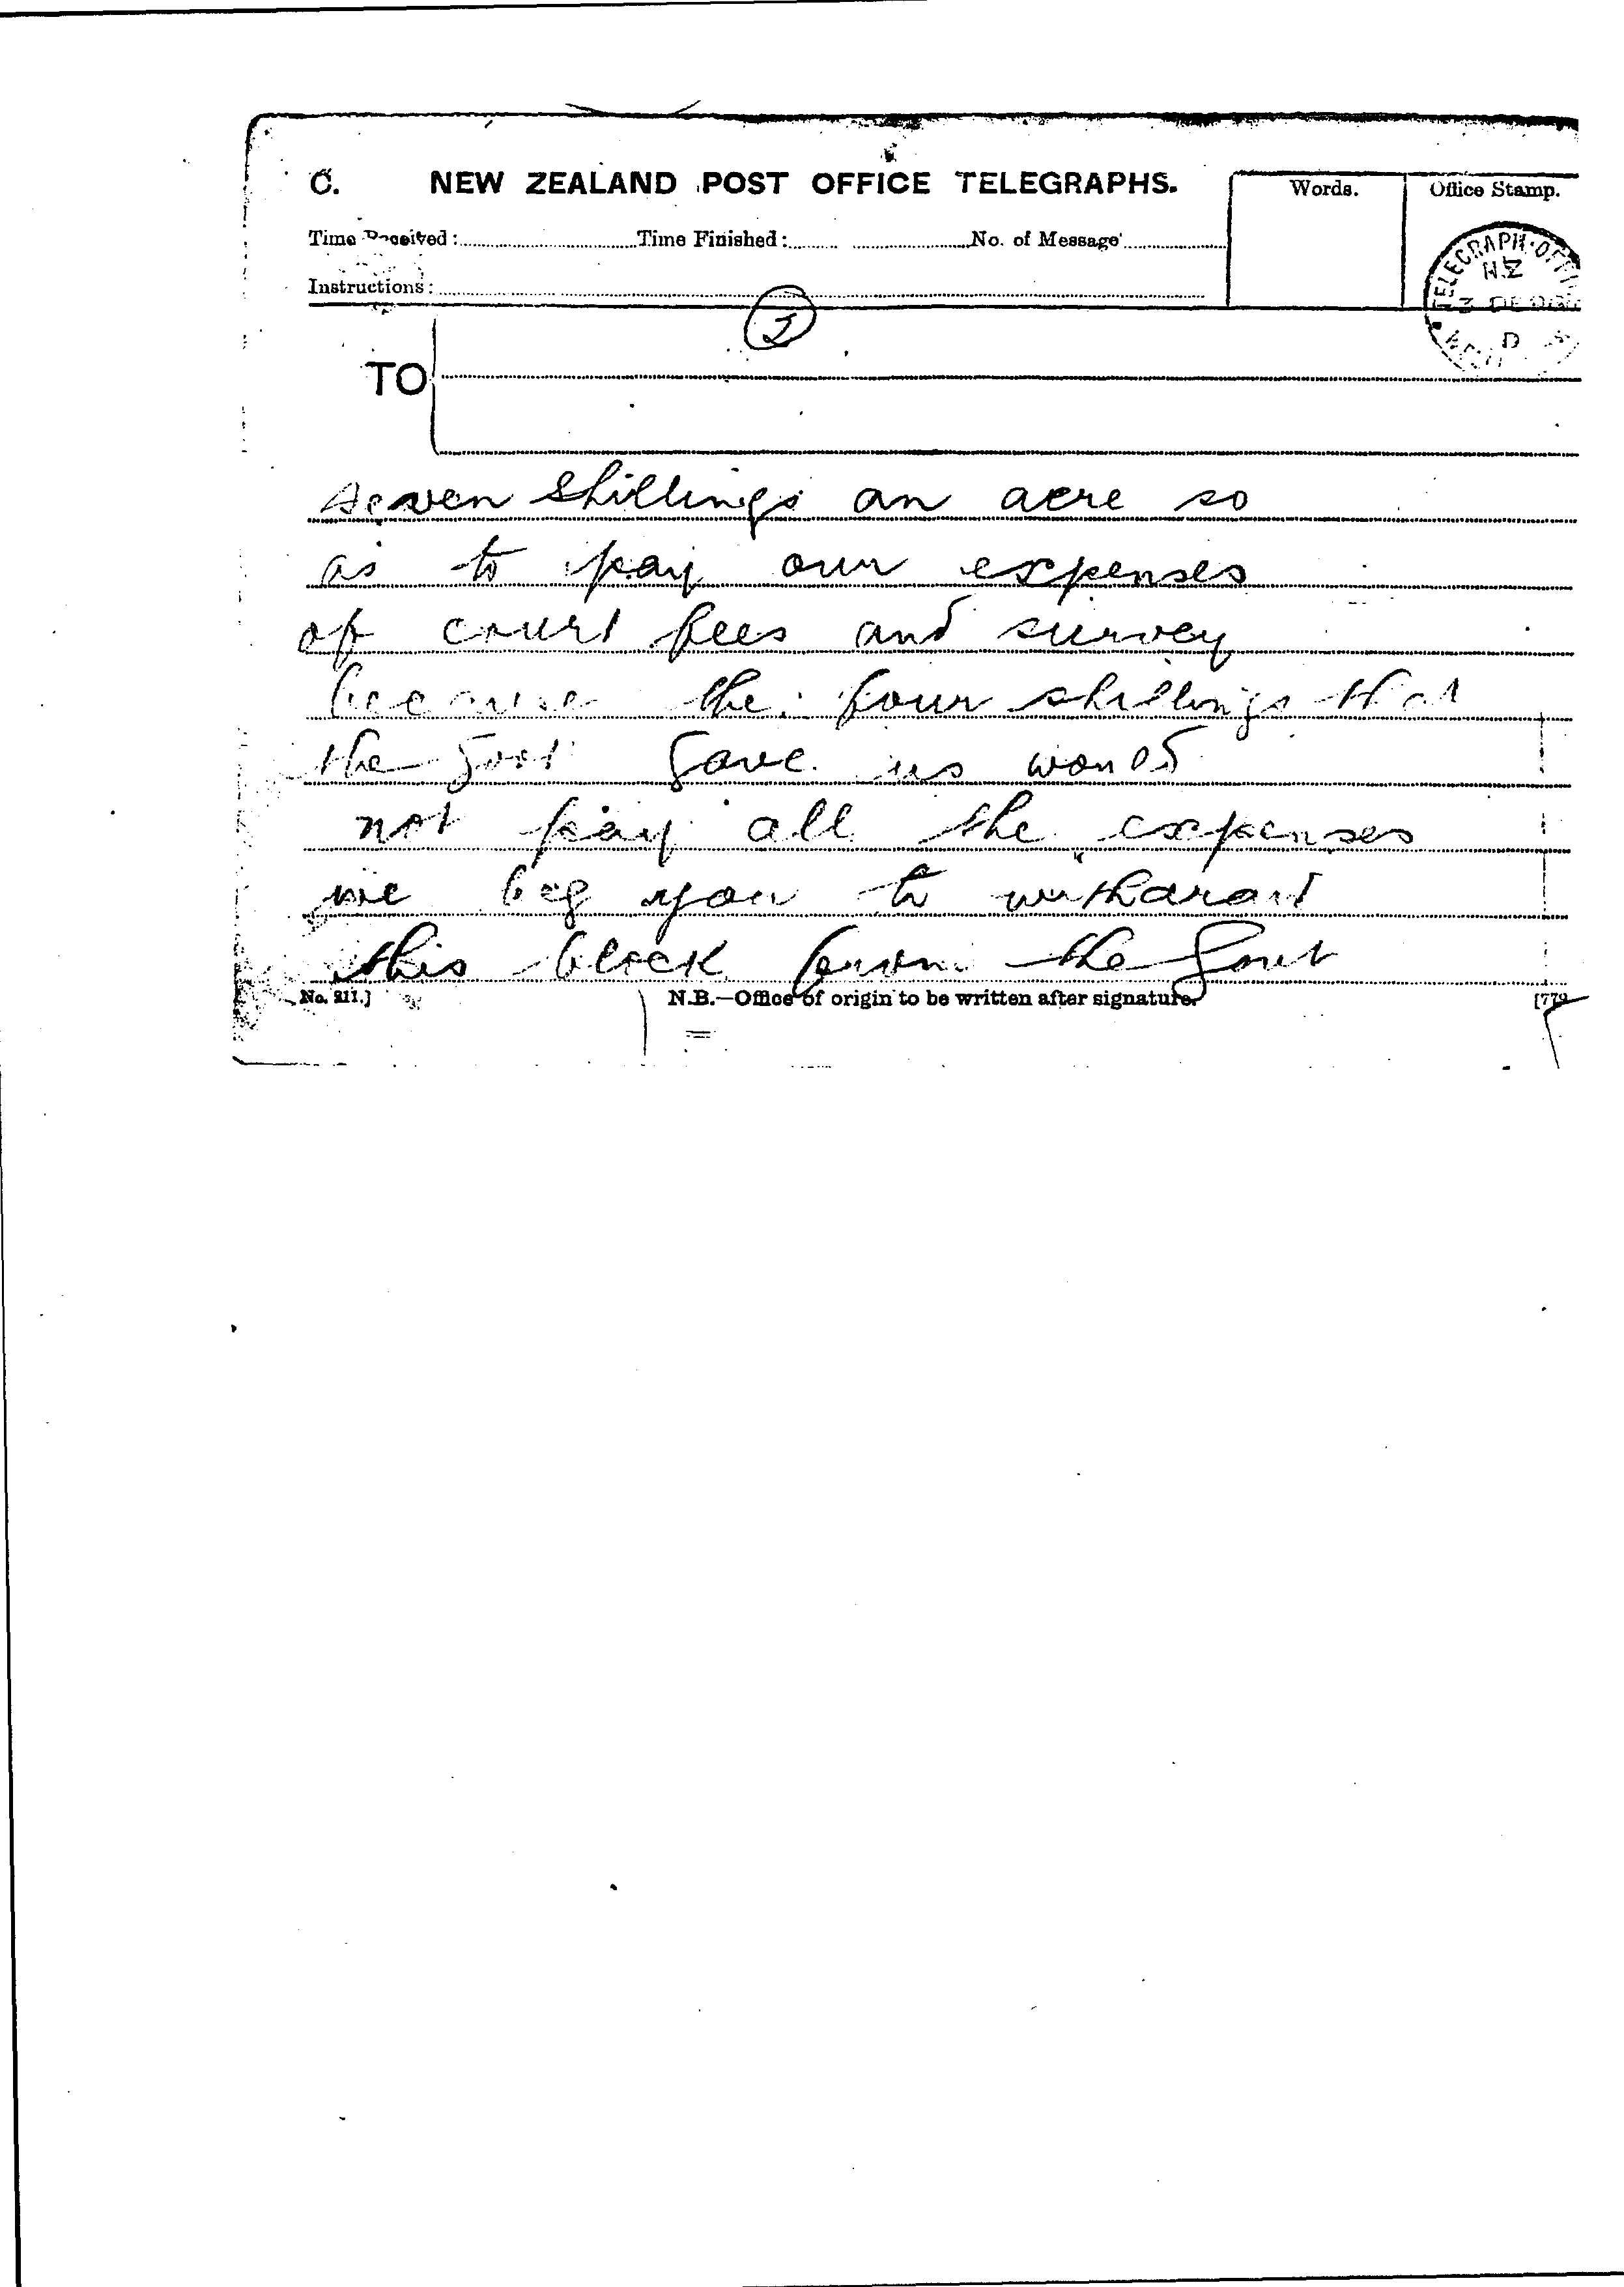 C. NEW ZEALAND POST OFFICE TELEGRAPHS. Words. Office Stamp.
Time Received: Time Finished: No. of Message
Instructions:
TELEGRAPH OFFI
NZ
3 DE
2
TO
seven shillings an acre so
as to pay our expenses
of court fees and survey
because the four shillings that
the Govt gave us would
not pay all the expenses
we beg you to withdraw
this block from the Govt
No. 211.] N.B.—Office of origin to be written after signature. [779